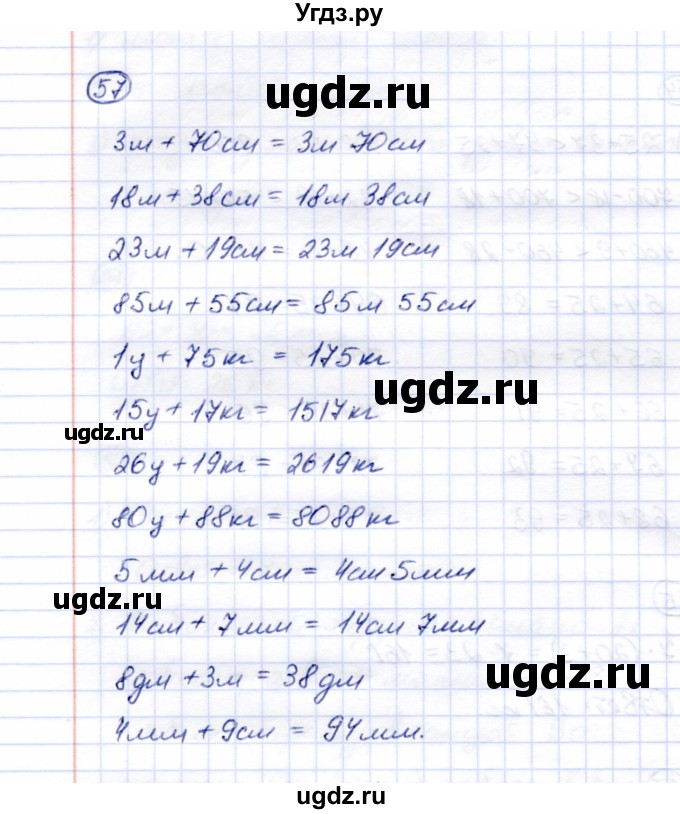 Угдз.ру
57
ugdz.ru
3м + 70см = 3м 70см
18м + 38см = 18м 38см
23м + 19см = 23м 19см
85м + 55см = 85м 55см
1ц + 75кг = 175кг
ugdz.ru
15ц + 17кг = 1517кг
ugdz.ru
26ц + 19кг = 2619кг
80ц + 88кг = 8088кг
5мм + 4см = 4см 5мм
ugdz.ru
14см + 7мм = 14см 7мм
8дм + 3м = 38дм
ugdz.ru
4мм + 9см = 94мм.
ugdz.ru